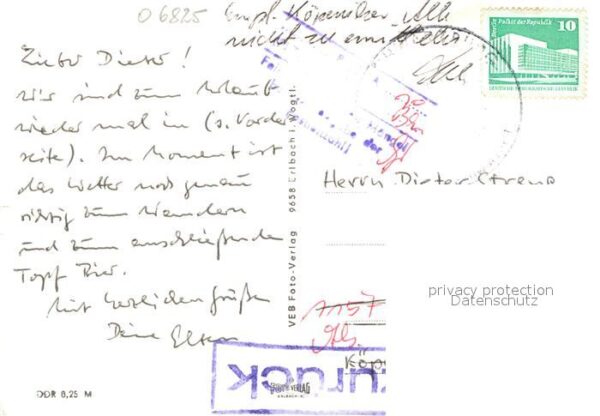 06825
Empf. Köpenicker Allee
nicht zu ermitteln!
Berlin Palast der Republik
10
DEUTSCHE DEMOKRATISCHE REPUBLIK
Lieber Dieter!
wir sind zum Urlaub
wieder mal in (s. Vorder
seite). Im Moment ist
das Wetter noch genau
richtig zum Wandern
und zum anschließenden
Topf Bier.
Mit herzlichen Grüßen
Deine Eltern
VEB Foto-Verlag 9658 Erlbach i. Vogtl.
Herrn Dieter
privacy protection
Datenschutz
1157
Köp
zurück
DDR 8,25 M